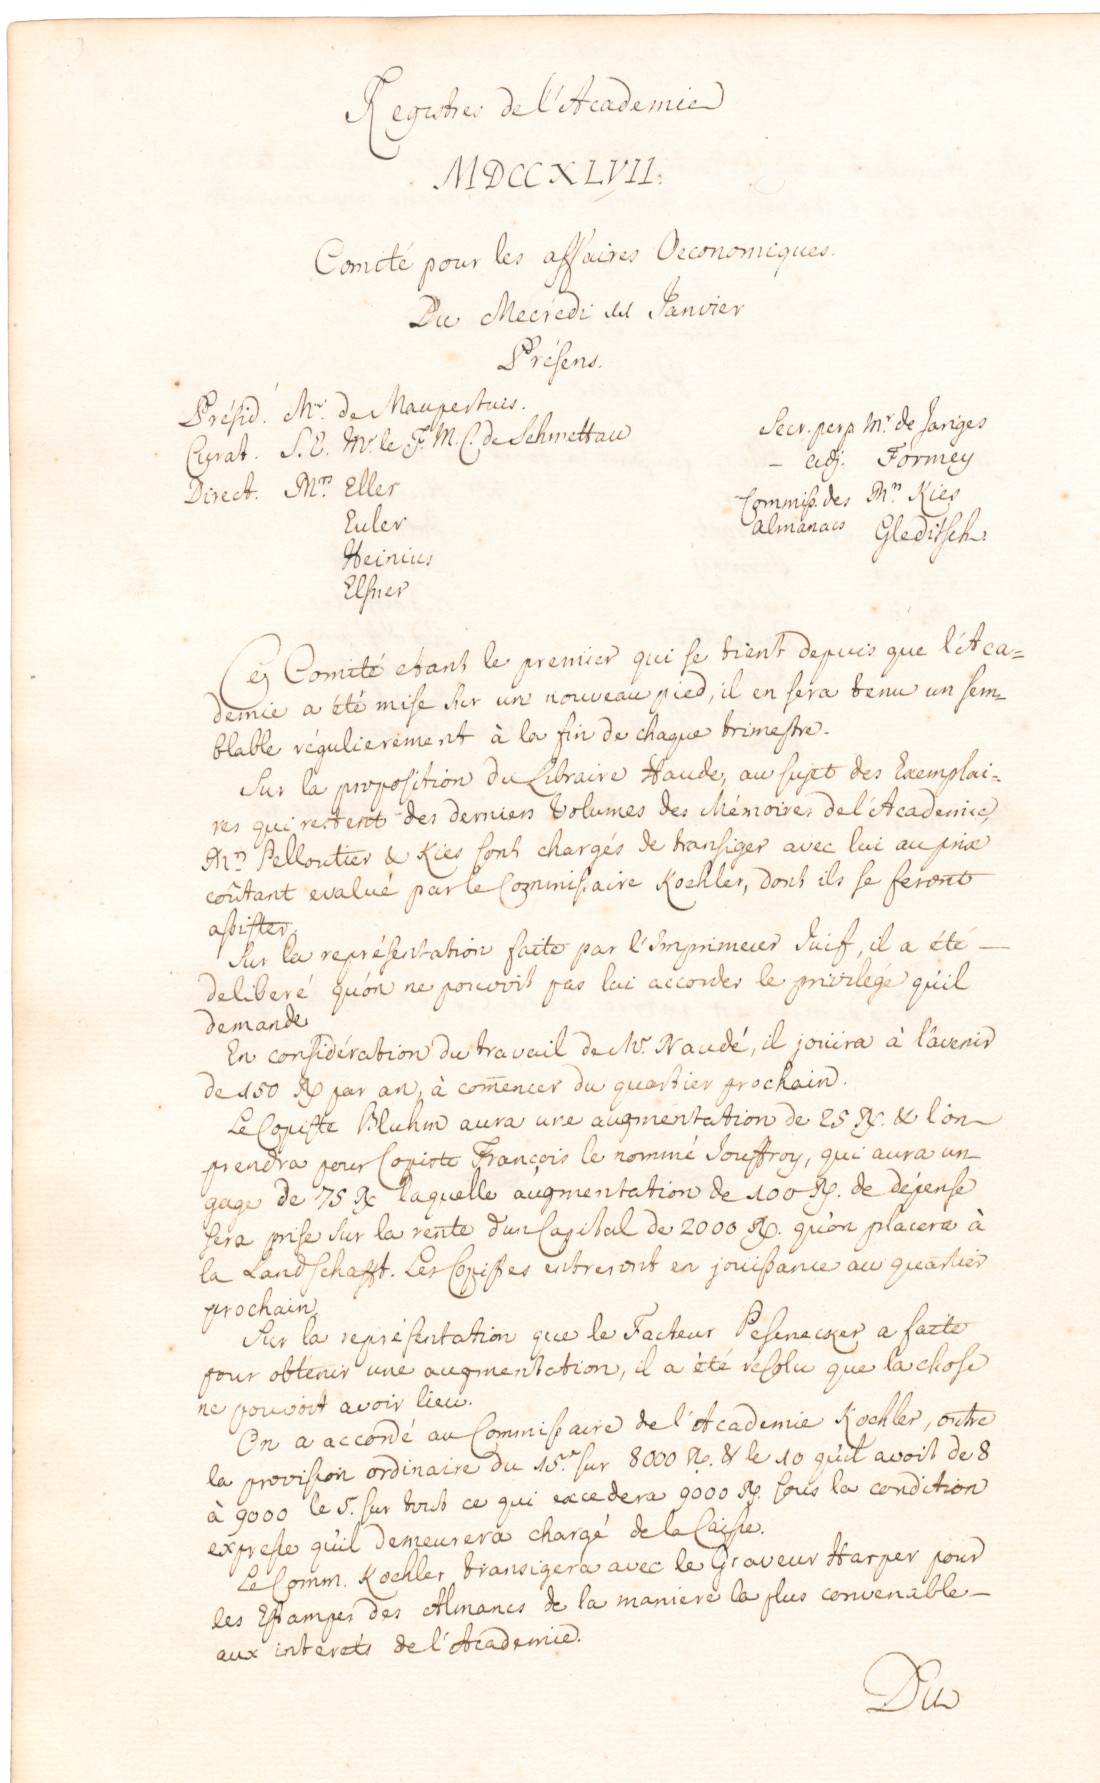 Registres de l'Academie
MDCCXLVII.
Comité pour les affaires Oeconomiques.
Du Mecredi 11 Janvier
Présens.
Présid. Mr. de Maupertuis.
Curat. S. E. Mr. le F. M. C. de Schmettau
Direct. Mrs. Eller
Euler
Heinius
Elsner
Secr. perp. Mr. de Jariges
— adj. Formey
Commiss. des Mrs. Kies
almanacs Gleditsch.
Ce Comité etant le premier qui se tient depuis que l'Aca=
demie a été mise sur un nouveau pied, il en sera tenu un sem-
blable régulierement à la fin de chaque trimestre.
Sur la proposition du Libraire Haude, au sujet des Exemplai=
res qui restent des derniers Volumes des Mémoires de l'Academie,
Mrs. Pelloutier & Kies sont chargés de transiger avec lui au prix
coûtant evalué par le Commissaire Koehler, dont ils se feront
assister.
Sur la représentation faite par l'Imprimeur Juif, il a été —
deliberé qu'on ne pouvoit pas lui accorder le privilége qu'il
demande
En considération du travail de Mr. Naudé, il jouira à l'avenir
de 150 Rx par an, à com̄encer du quartier prochain.
Le Copiste Bluhm aura une augmentation de 25 Rx. & l'on —
prendra pour Copiste François le nommé Jouffroy, qui aura un —
gage de 75 Rx laquelle augmentation de 100 Rx. de dépense
sera prise sur la rente d'un Capital de 2000 Rx. qu'on placera à
la Landschafft. Les Copistes entreront en jouissance au quartier
prochain.
Sur la représentation que le Facteur Pesenecker a faite
pour obtenir une augmentation, il a été résolu que la chose
ne pouvoit avoir lieu.
On a accordé au Commissaire de l'Academie Koehler, outre
la provision ordinaire du 15.e sur 8000 Rx. & le 10 qu'il avoit de 8
à 9000 le 5. sur tout ce qui excedera 9000 Rx. sous la condition
expresse qu'il demeurera chargé de la Caisse.
Le Comm. Koehler transigera avec le Graveur Harper pour
les Estampes des Almancs de la maniere la plus convenable —
aux interets de l'Academie.
Du